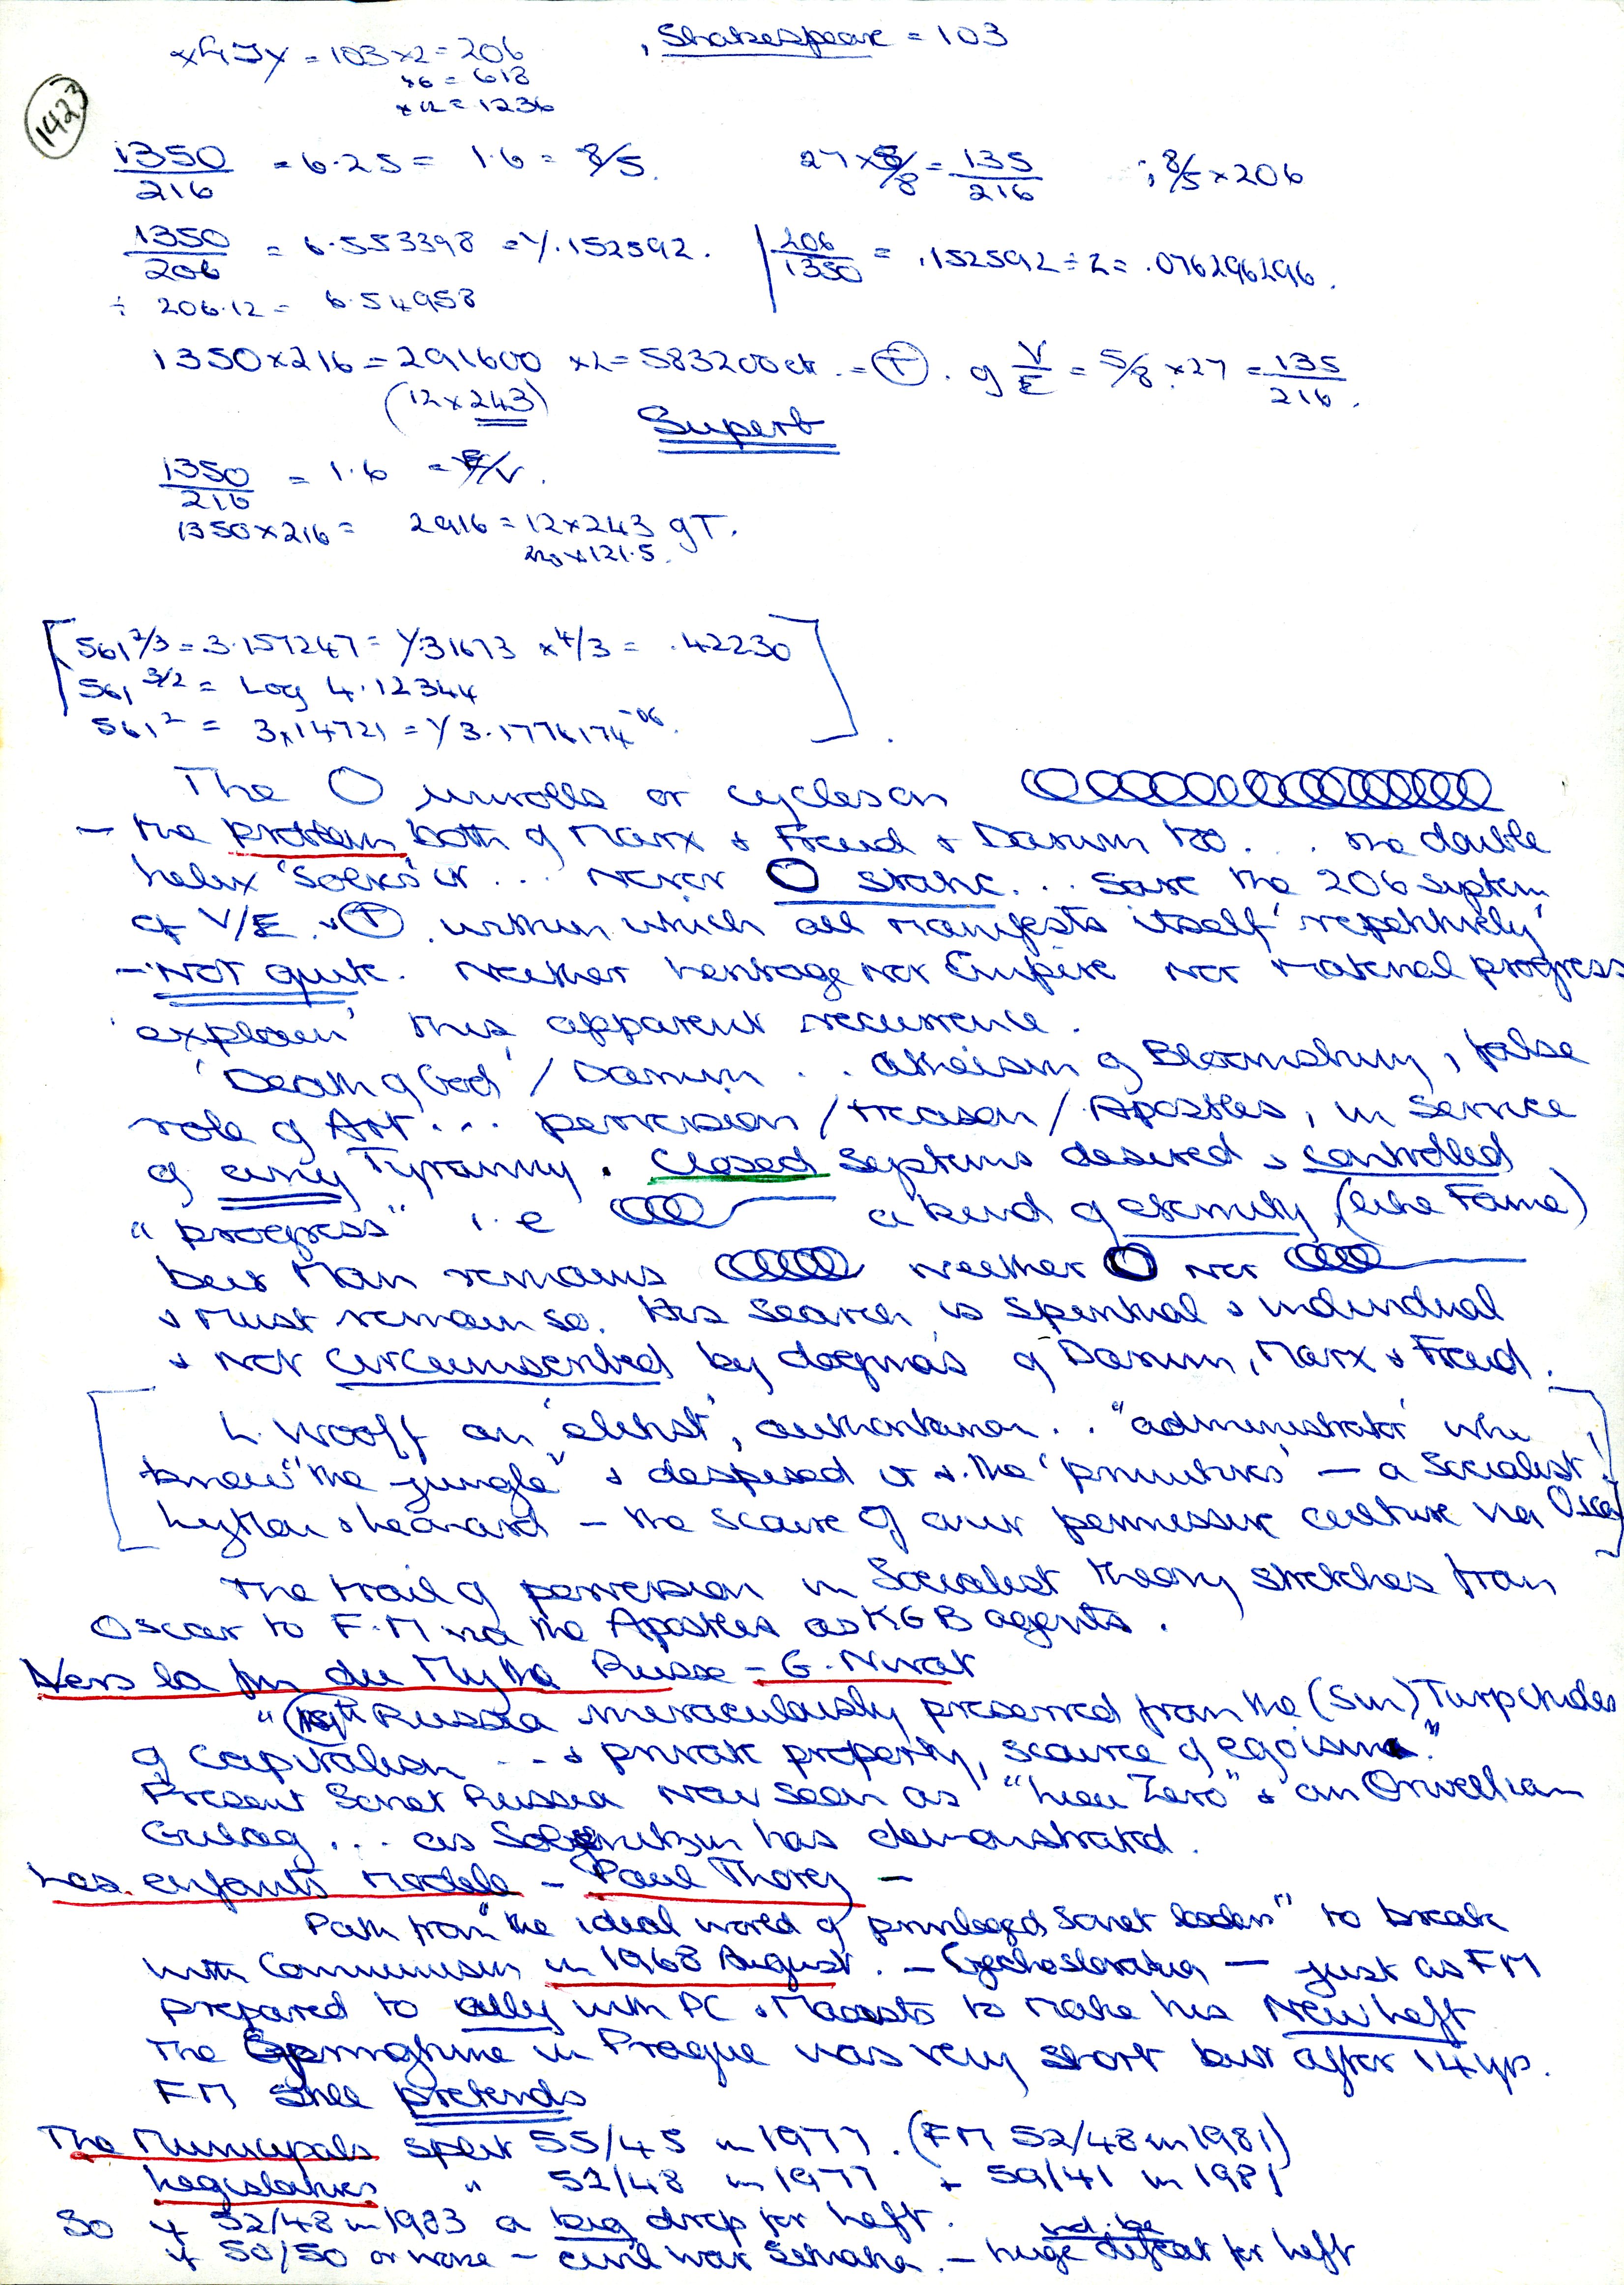 Shakespeare = 103
= 103 x 2 = 206
x6 = 618
x12 = 1236
1423
1350/216 = 6.25 = 1.6 = 8/5. 27 x 5/8 = 135/216 ; 8/5 x 206
1350/206 = 6.553398 = 1/.152592. 206/1350 = .152592 ÷ 2 = .076296296.
÷ 206.12 = 6.54958
1350 x 216 = 291600 x2 = 583200 etc. = (T). g V/E = 5/8 x 27 = 135/216.
(12 x 243)
Superb
1350/216 = 1.6 = E/V.
1350 x 216 = 2916 = 12 x 243 gT.
x 121.5.
[561 2/3 = 3.157247 = 1/.31673 x 4/3 = .42230]
561 3/2 = Log 4.12344
561 2 = 3.14721 = 1/3.1776174 -06.
The O unrolls or cycles on
– the problem both of Marx & Freud & Darwin too... the double
helix 'solves' it... never O static... save the 206 system
of V/E & (T). within which all manifests itself 'repetitively'
– 'Not quite. Neither heritage nor Empire nor material progress
'explain' this apparent recurrence.
'Death of God' / Darwin .. atheism of Bloomsbury, false
role of Art... perversion / treason / Apostles, in service
of any Tyranny. Closed systems desired & controlled
"progress" i.e a kind of eternity (like Fame)
but Man remains neither O nor
& must remain so. His search is spiritual & individual
& not circumscribed by dogmas of Darwin, Marx & Freud.
[L. Woolf an 'elitist', authoritarian.. "administrator" who
knew "the jungle" & despised it & the 'primitives' — a Socialist!
Lytton & Leonard – the source of our permissive culture via Oscar]
The trail of perversion in Socialist theory stretches from
Oscar to F.M via the Apostles as KGB agents.
Vers la fin du Mythe Russe – G. Nivat
"(19th) Russia miraculously preserved from the (Sin) Turpitudes
of Capitalism ... & private property, source of egoism."
Present Soviet Russia now seen as "lieu Zero" & an Orwellian
Gulag... as Solzhenitzin has demonstrated.
Les enfants modele – Paul Thorez –
Path from "the ideal world of privileged Soviet leaders" to break
with Communism in 1968 August. – Czechoslovakia — just as FM
prepared to ally with PC & Maoists to make his New Left
The Springtime in Prague was very short but after 14 yrs.
FM still pretends
The Municipals split 55/45 in 1977. (FM 52/48 in 1981)
Legislatives " 52/48 in 1977 + 59/41 in 1981
So if 52/48 in 1983 a big drop for Left.
if 50/50 or worse – civil war scenario. – huge defeat for Left